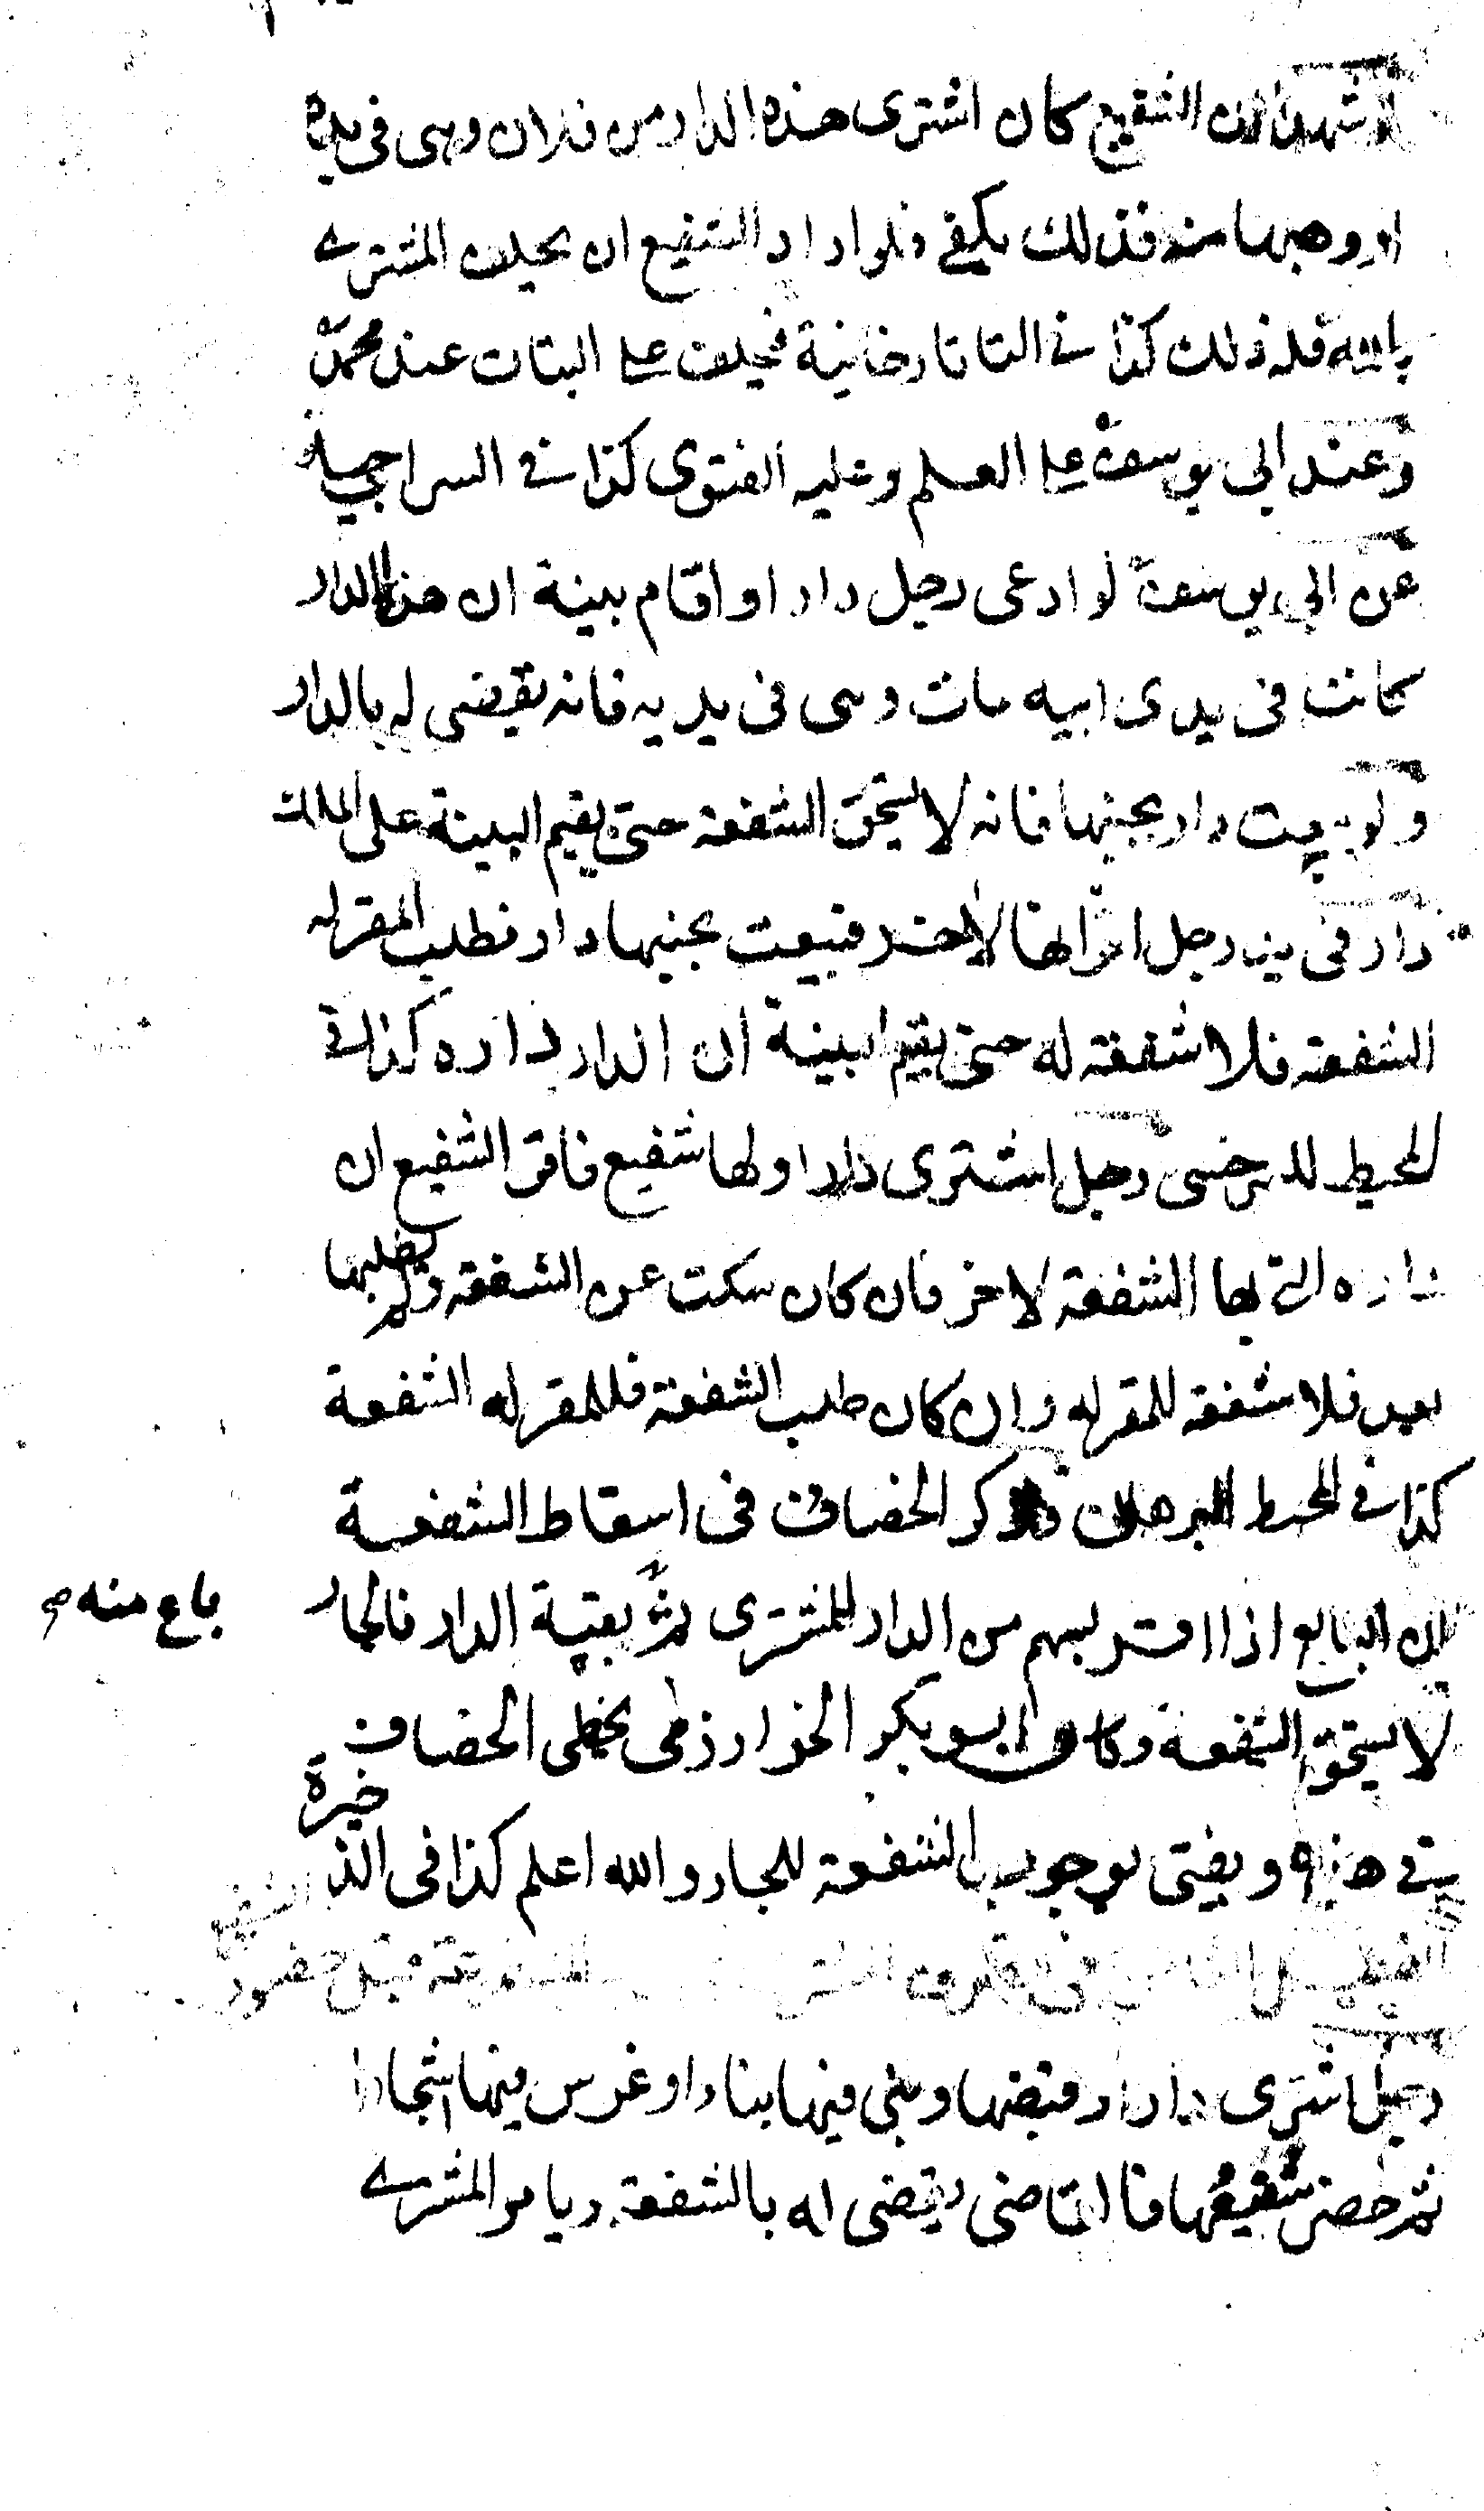 لو شهدا ان الشفيع كان اشترى هذه الدار من فلان وهى فى يده
او وهبها منه فذلك يكفى فلو اراد الشفيع ان يحلف المشترى
بالله فله ذلك كذا فى التاتارخانية فيحلف على البتات عند محمد
وعند ابى يوسف على العلم وعليه الفتوى كذا فى السراجية
عن ابى يوسف لو ادعى رجل دارا واقام بينة ان هذه الدار
كانت فى يدى ابيه مات وهى فى يديه فانه يقضى له بالدار
ولو بيعت دار بجنبها فانه لا يستحق الشفعة حتى يقيم البينة على الملك
دار فى يد رجل اقر انها لاخر فبيعت بجنبها دار فطلب المقر له
الشفعة فلا شفعة له حتى يقيم البينة ان الدار داره كذا فى
المحيط للسرخسى رجل اشترى دارا ولها شفيع فاقر الشفيع ان
داره التى بها الشفعة لاخر فان كان سكت عن الشفعة ولم يطلبها
بعد فلا شفعة للمقر له وان كان طلب الشفعة فللمقر له الشفعة
كذا فى المحيط البرهانى ذكر الخصاف فى اسقاط الشفعة
ان البايع اذا اقر بسهم من الدار للمشترى ثم بقية الدار فالجار
باع منه صح
لا يستحق الشفعة وكان ابو بكر الخوارزمى يخطى الخصاف
فى هذا ويفتى بوجوب الشفعة للجار والله اعلم كذا فى الذخيرة
قبل حضور الشفيع
رجل اشترى دارا وقبضها وبنى فيها بناء او غرس فيها اشجارا
ثم حضر شفيعها فالقاضى يقضى له بالشفعة ويامر المشترى